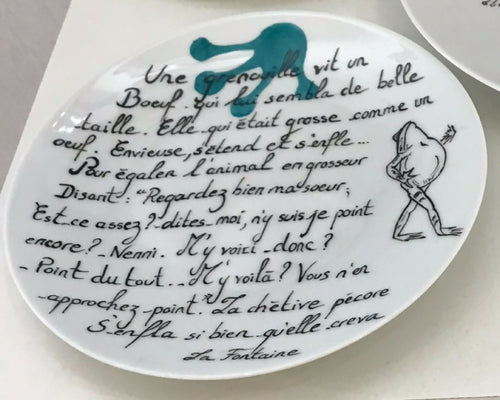 Une grenouille vit un
Boeuf. Qui lui sembla de belle
taille. Elle qui était grosse comme un
oeuf. Envieuse, s'étend et s'enfle...
Pour égaler l'animal en grosseur
Disant: "Regardez bien ma soeur;
Est-ce assez? dites-moi, n'y suis je point
encore? - Nenni. M'y voici donc?
- Point du tout... M'y voilà? Vous n'en
approchez point." La chétive pécore
S'enfla si bien qu'elle creva
La Fontaine